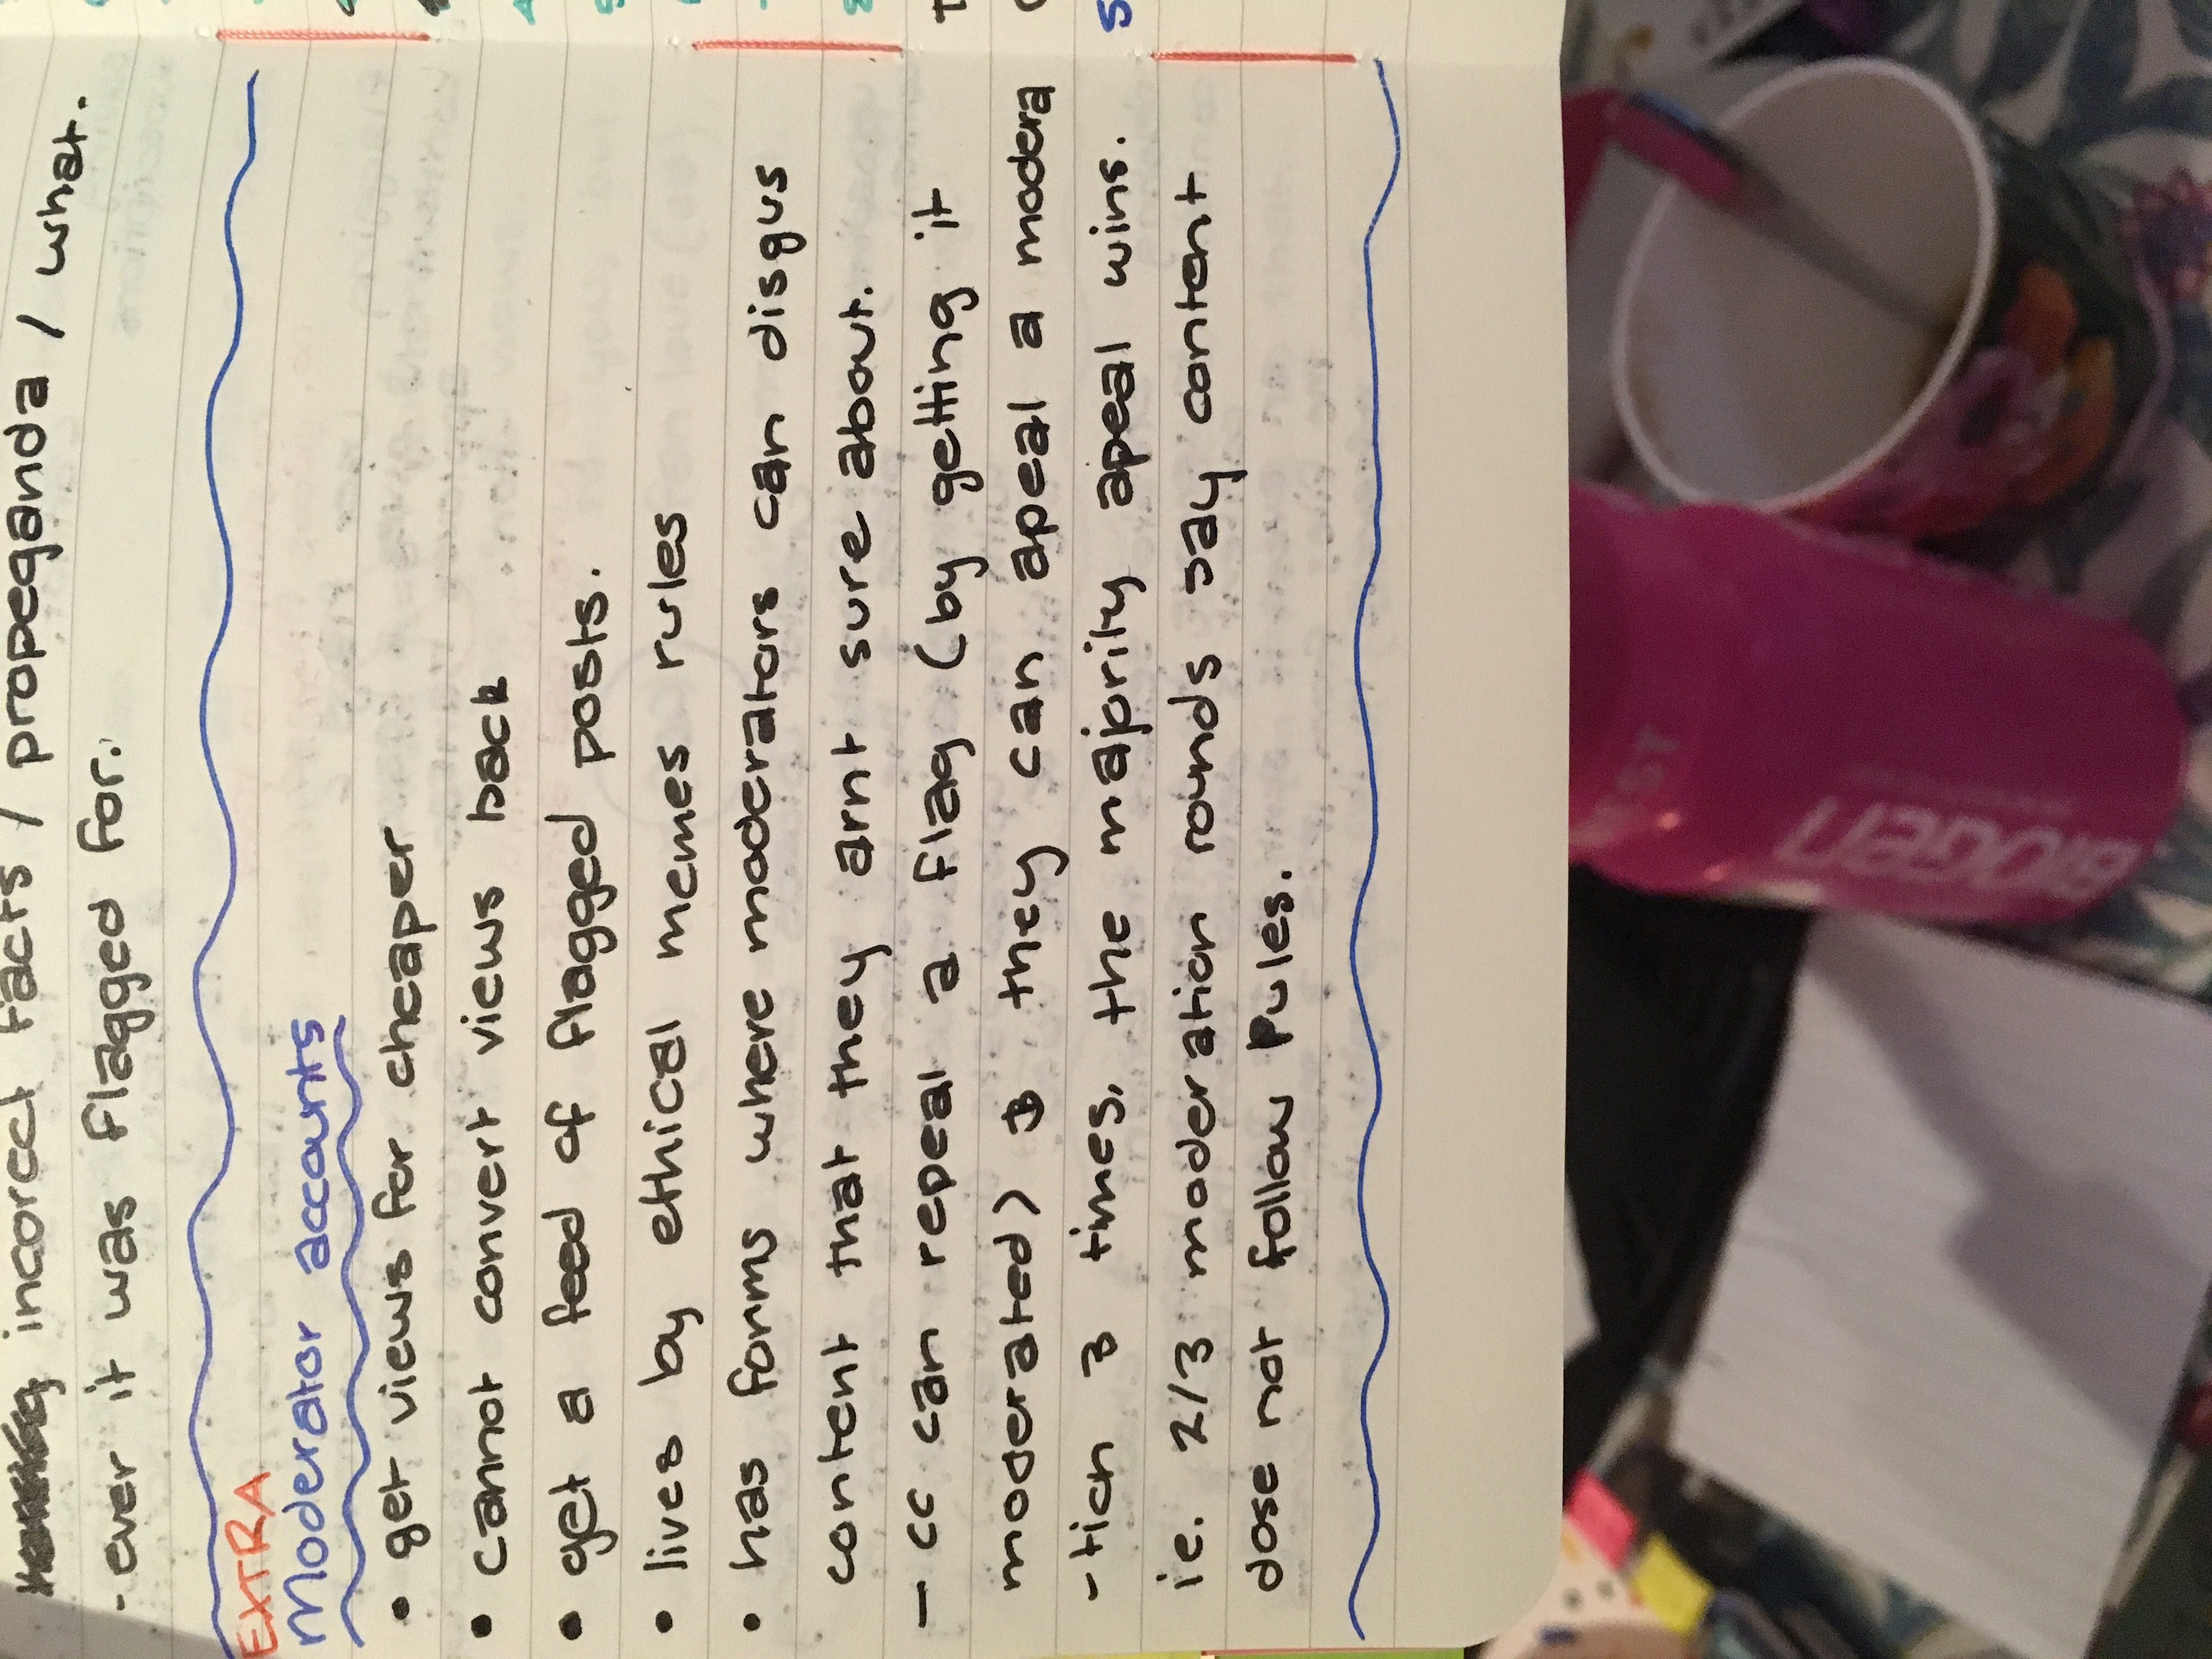 incorect facts / propeganda / what.
- ever it was flagged for.
EXTRA
Moderator accounts
• get views for cheaper
• cannot convert views back
• get a feed of flagged posts.
• lives by ethical memes rules
• has forms where moderators can disgus
content that they arnt sure about.
- cc can repeal a flag (by getting it
moderated) & they can apeal a modera
-tion 3 times, the majority apeal wins.
ie. 2/3 moderation rounds say content
dose not follow Rules.
BIOGEN